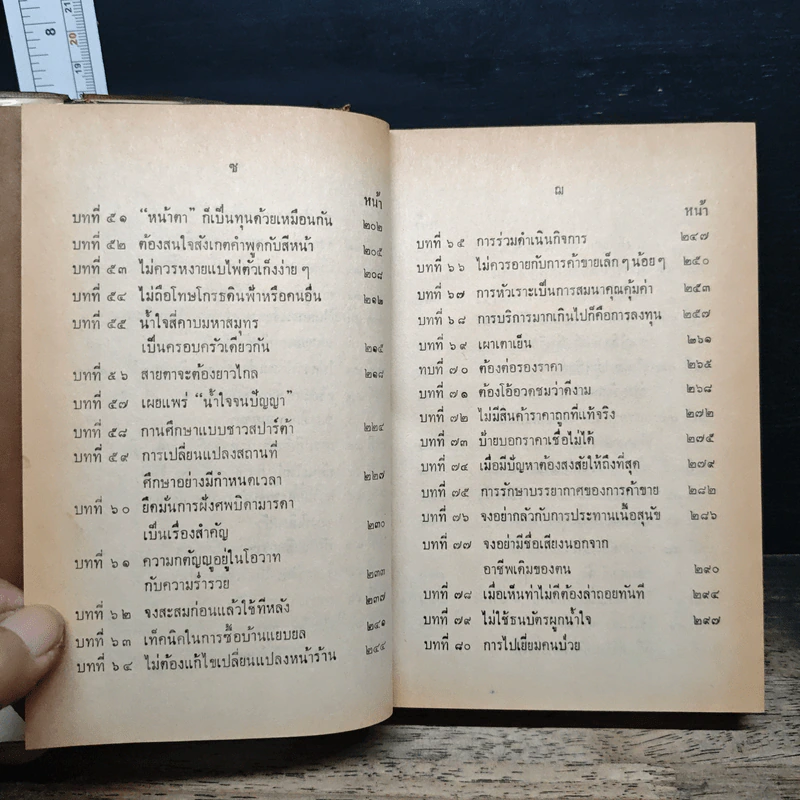 8
21
20
19
ช
หน้า
บทที่ ๕๑ “หน้าตา” ก็เป็นทุนด้วยเหมือนกัน ๒๐๒
บทที่ ๕๒ ต้องสนใจสังเกตคำพูดกับสีหน้า ๒๐๕
บทที่ ๕๓ ไม่ควรหงายแบไพ่ตัวเก็งง่าย ๆ ๒๐๘
บทที่ ๕๔ ไม่ถือโทษโกรธดินฟ้าหรือคนอื่น ๒๑๒
บทที่ ๕๕ น้ำใจสี่คาบมหาสมุทร
เป็นครอบครัวเดียวกัน ๒๑๕
บทที่ ๕๖ สายตาจะต้องยาวไกล ๒๑๘
บทที่ ๕๗ เผยแพร่ “น้ำใจจนปัญญา”
บทที่ ๕๘ การศึกษาแบบชาวสปาร์ต้า ๒๒๔
บทที่ ๕๙ การเปลี่ยนแปลงสถานที่
ศึกษาอย่างมีกำหนดเวลา ๒๒๗
บทที่ ๖๐ ยึดมั่นการฝังศพบิดามารดา
เป็นเรื่องสำคัญ ๒๓๐
บทที่ ๖๑ ความกตัญญูอยู่ในโอวาท
กับความร่ำรวย ๒๓๓
บทที่ ๖๒ จงสะสมก่อนแล้วใช้ทีหลัง ๒๓๗
บทที่ ๖๓ เท็คนิคในการซื้อบ้านแยบยล ๒๔๑
บทที่ ๖๔ ไม่ต้องแก้ไขเปลี่ยนแปลงหน้าร้าน ๒๔๔
ฌ
หน้า
บทที่ ๖๕ การร่วมดำเนินกิจการ ๒๔๗
บทที่ ๖๖ ไม่ควรอายกับการค้าขายเล็ก ๆ น้อย ๆ ๒๕๐
บทที่ ๖๗ การหัวเราะเป็นการสมนาคุณคุ้มค่า ๒๕๓
บทที่ ๖๘ การบริการมากเกินไปก็คือการลงทุน ๒๕๗
บทที่ ๖๙ เผาเตาเย็น ๒๖๑
ทบที่ ๗๐ ต้องต่อรองราคา ๒๖๕
บทที่ ๗๑ ต้องโอ้อวดชมว่าดีงาม ๒๖๘
บทที่ ๗๒ ไม่มีสินค้าราคาถูกที่แท้จริง ๒๗๒
บทที่ ๗๓ ป้ายบอกราคาเชื่อไม่ได้ ๒๗๕
บทที่ ๗๔ เมื่อมีปัญหาต้องสงสัยให้ถึงที่สุด ๒๗๙
บทที่ ๗๕ การรักษาบรรยากาศของการค้าขาย ๒๘๒
บทที่ ๗๖ จงอย่ากลัวกับการประทานเนื้อสุนัข ๒๘๖
บทที่ ๗๗ จงอย่ามีชื่อเสียงนอกจาก
อาชีพเดิมของตน ๒๙๐
บทที่ ๗๘ เมื่อเห็นท่าไม่ดีต้องล่าถอยทันที ๒๙๔
บทที่ ๗๙ ไม่ใช้ธนบัตรผูกน้ำใจ ๒๙๗
บทที่ ๘๐ การไปเยี่ยมคนป่วย